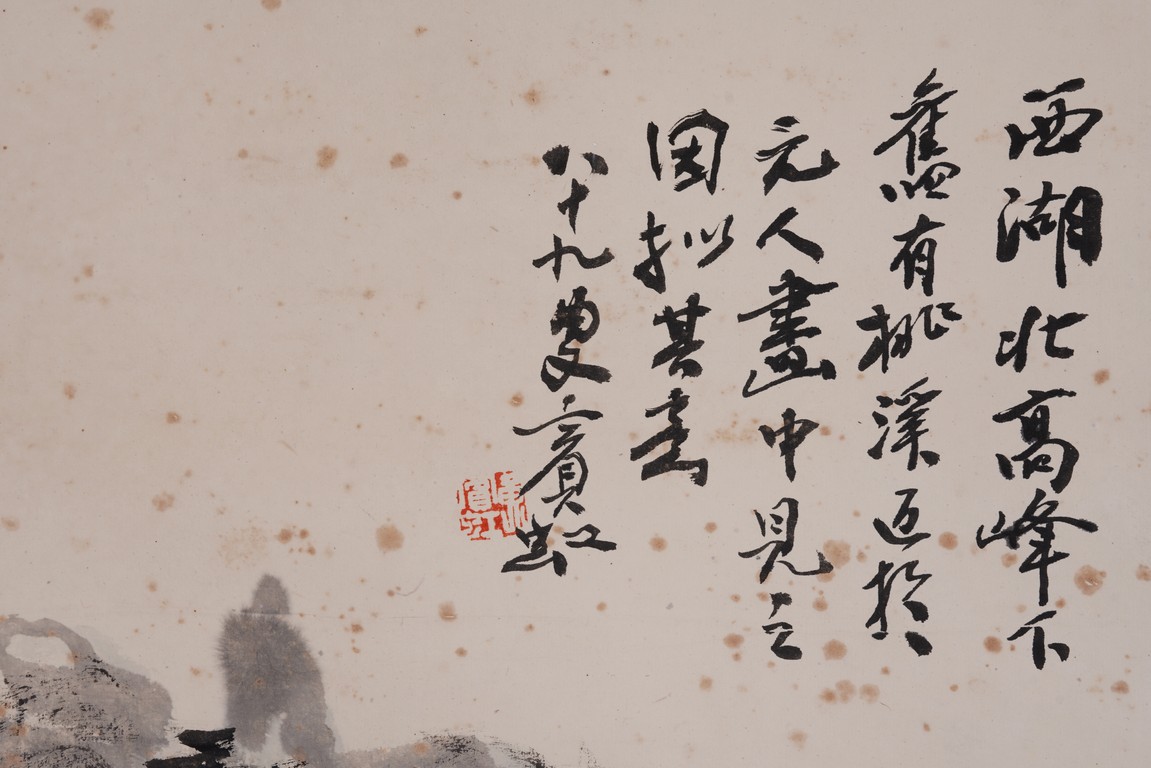 西湖北高峰下
舊有桃溪近於
元人畫中見之
因擬其意
八十九叟賓虹